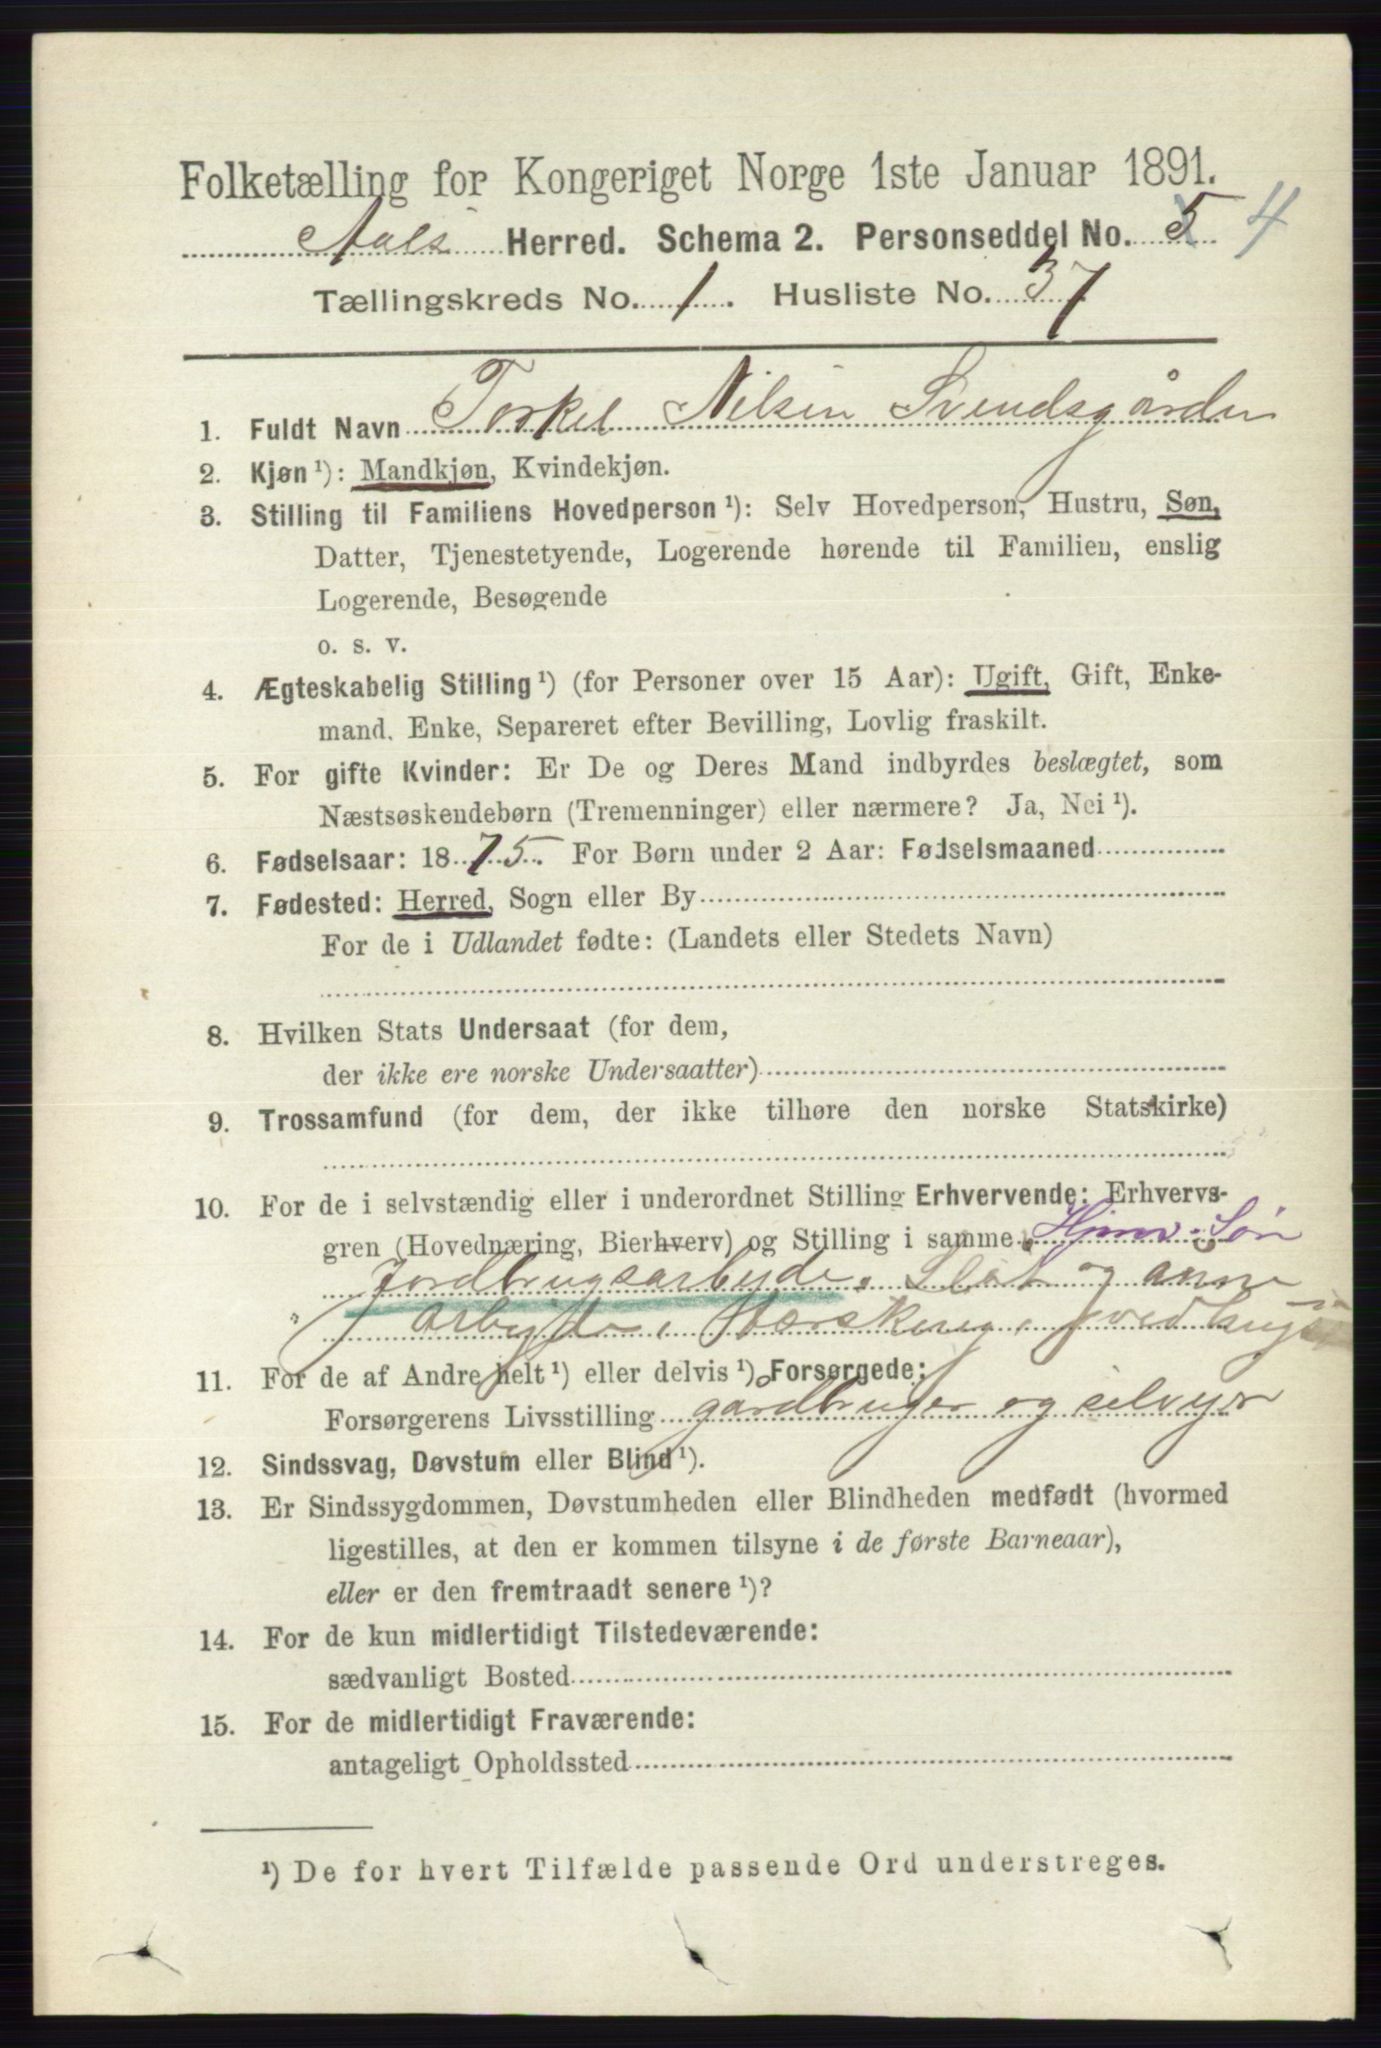 Folketælling for Kongeriget Norge 1ste Januar 1891.
Aals Herred. Schema 2. Personseddel No. 5 4
Tællingskreds No. 1. Husliste No. 37
1. Fuldt Navn Torkel Nilsen Svendsgården
2. Kjøn ¹): Mandkjøn, Kvindekjøn.
3. Stilling til Familiens Hovedperson ¹): Selv Hovedperson, Hustru, Søn,
Datter, Tjenestetyende, Logerende hørende til Familien, enslig
Logerende, Besøgende
o. s. v.
4. Ægteskabelig Stilling ¹) (for Personer over 15 Aar): Ugift, Gift, Enke-
mand, Enke, Separeret efter Bevilling, Lovlig fraskilt.
5. For gifte Kvinder: Er De og Deres Mand indbyrdes beslægtet, som
Næstsøskendebørn (Tremenninger) eller nærmere? Ja, Nei ¹).
6. Fødselsaar: 1875. For Børn under 2 Aar: Fødselsmaaned
7. Fødested: Herred, Sogn eller By
For de i Udlandet fødte: (Landets eller Stedets Navn)
8. Hvilken Stats Undersaat (for dem,
der ikke ere norske Undersaatter)
9. Trossamfund (for dem, der ikke tilhøre den norske Statskirke)
10. For de i selvstændig eller i underordnet Stilling Erhvervende: Erhvervs-
gren (Hovednæring, Bierhverv) og Stilling i samme Søn
Jordbrugsarbyde, Slåt og anne
arbyde, Tærskeng,
11. For de af Andre helt ¹) eller delvis ¹) Forsørgede:
Forsørgerens Livsstilling gårdbruger og selvejer
12. Sindssvag, Døvstum eller Blind ¹).
13. Er Sindssygdommen, Døvstumheden eller Blindheden medfødt (hvormed
ligestilles, at den er kommen tilsyne i de første Barneaar),
eller er den fremtraadt senere ¹)?
14. For de kun midlertidigt Tilstedeværende:
sædvanligt Bosted
15. For de midlertidigt Fraværende:
antageligt Opholdssted
¹) De for hvert Tilfælde passende Ord understreges.